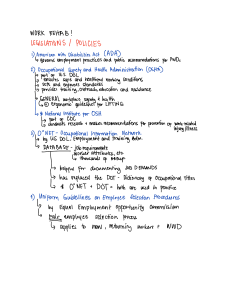 WORK REHAB!
LEGISLATIONS / POLICIES
1) American with Disabilities Act (ADA)
↳ governs employment practices and public accommodations for PWDs
2) Occupational Safety and Health Administration (OSHA)
↳ part of U.S. DOL
↳ ensures safe and healthful working conditions
↳ sets and enforces standards
↳ provides training, outreach, education and assistance
↳ GENERAL workplace safety & health
↳ Ergonomic guidelines for LIFTING
* National Institute for OSH
↳ part of CDC
↳ conducts research + makes recommendations for prevention of work-related
injury/illness
3) O*NET - Occupational Information Network
↳ by US DOL, Employment and Training Admin
↳ DATABASE - job requirements
worker attributes, etc.
↳ thousands of
↳ helpful for documenting JOB DEMANDS
↳ has replaced the DOT - Dictionary of Occupational Titles
↳ O*NET + DOT = both are used in practice
4) Uniform Guidelines on Employee Selection Procedures
↳ by Equal Employment Opportunity Commission
↳ fair employee selection process
↳ applies to new, returning workers & PWD